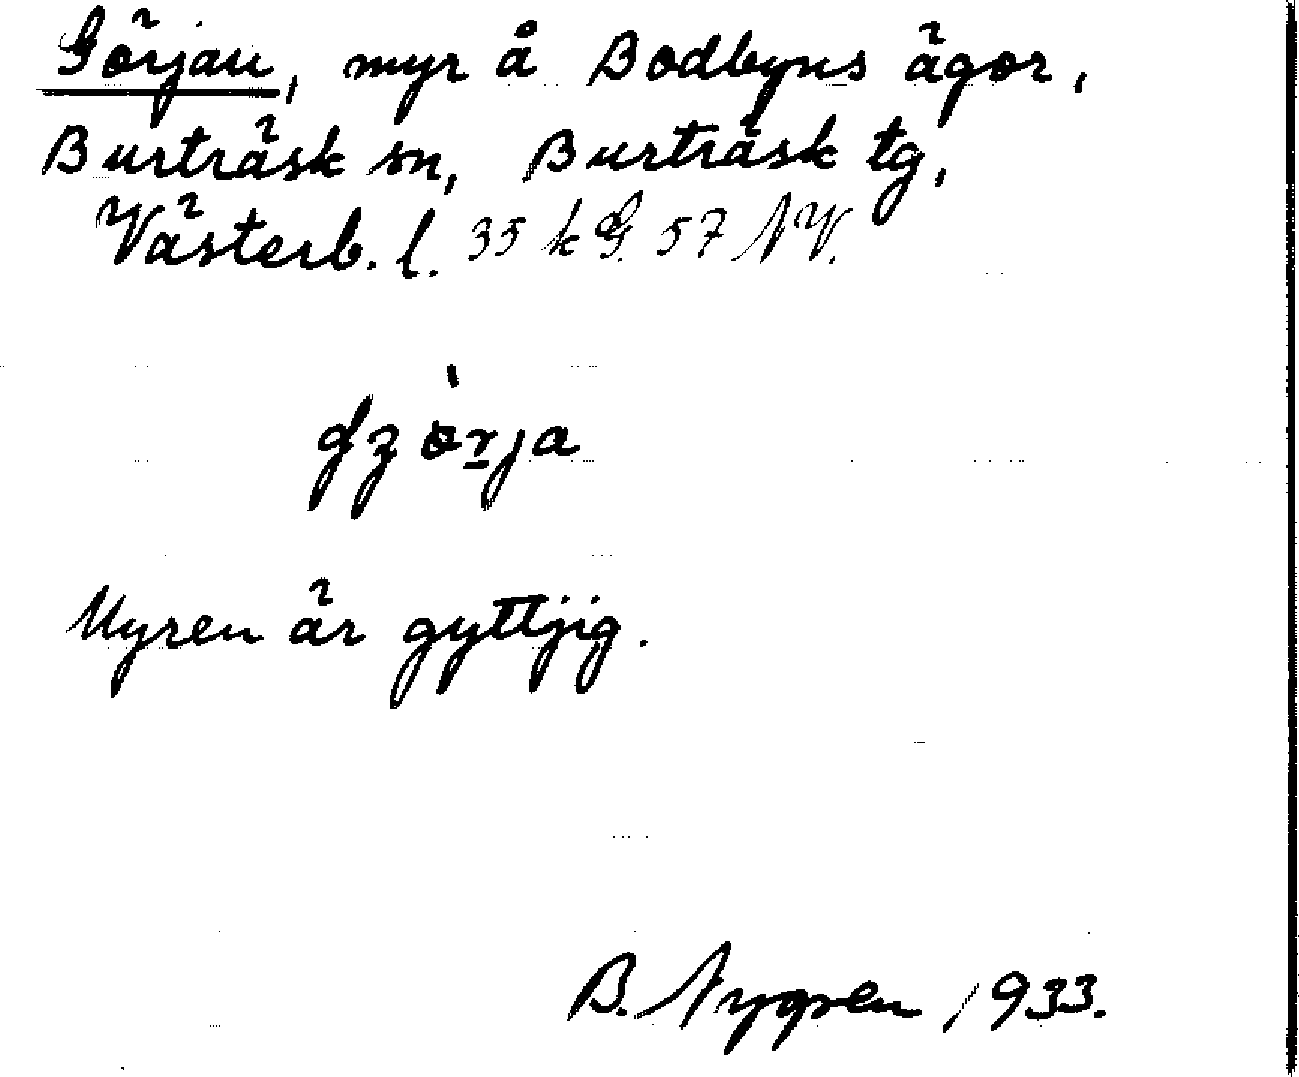 Görjan, myr å Bodbyns ägor,
Burträsk sn, Burträsk tg,
Västerb. l. 35 k G. 57 NV.
Myren är gyttjig.
B. Nygren 1933.